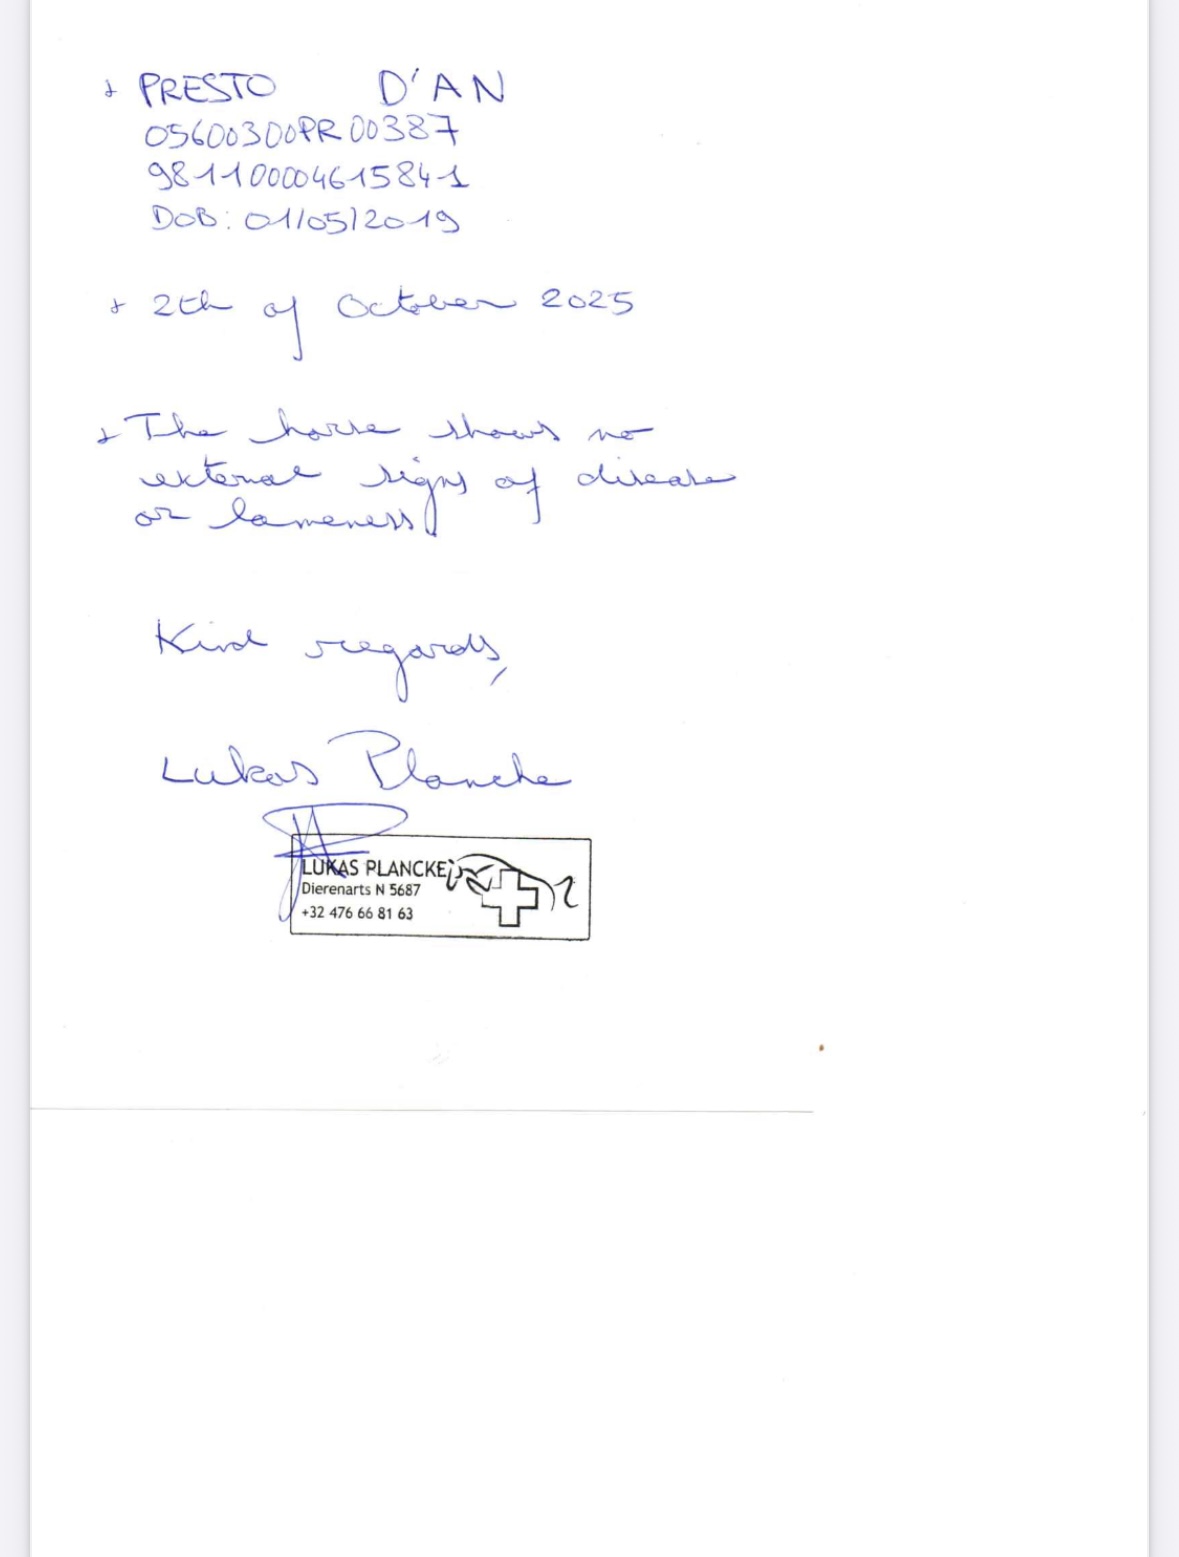 + PRESTO D'AN
05600300PR00387
981100004615841
DOB: 01/05/2019
+ 2th of October 2025
+ The horse shows no
external signs of disease
or lameness
Kind regards,
Lukas Plancke
LUKAS PLANCKE
Dierenarts N 5687
+32 476 66 81 63